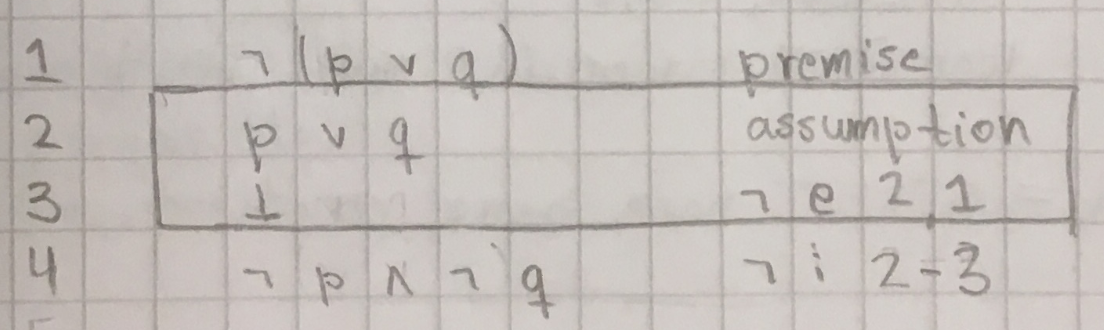 1 ¬(p ∨ q) premise
2 p ∨ q assumption
3 ⊥ ¬e 2 1
4 ¬p ∧ ¬q ¬i 2-3